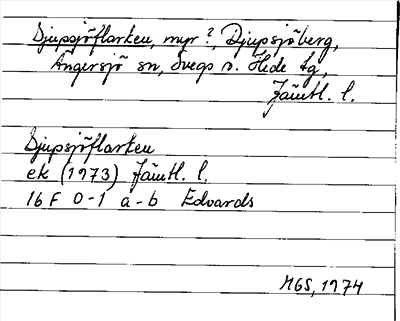 Djupsjöflarken, myr?, Djupsjöberg,
Ängersjö sn, Svegs o. Hede tg,
Jämtl. l.
Djupsjöflarken
ek (1973) Jämtl. l.
16 F 0-1 a-b Edvards
MGS, 1974